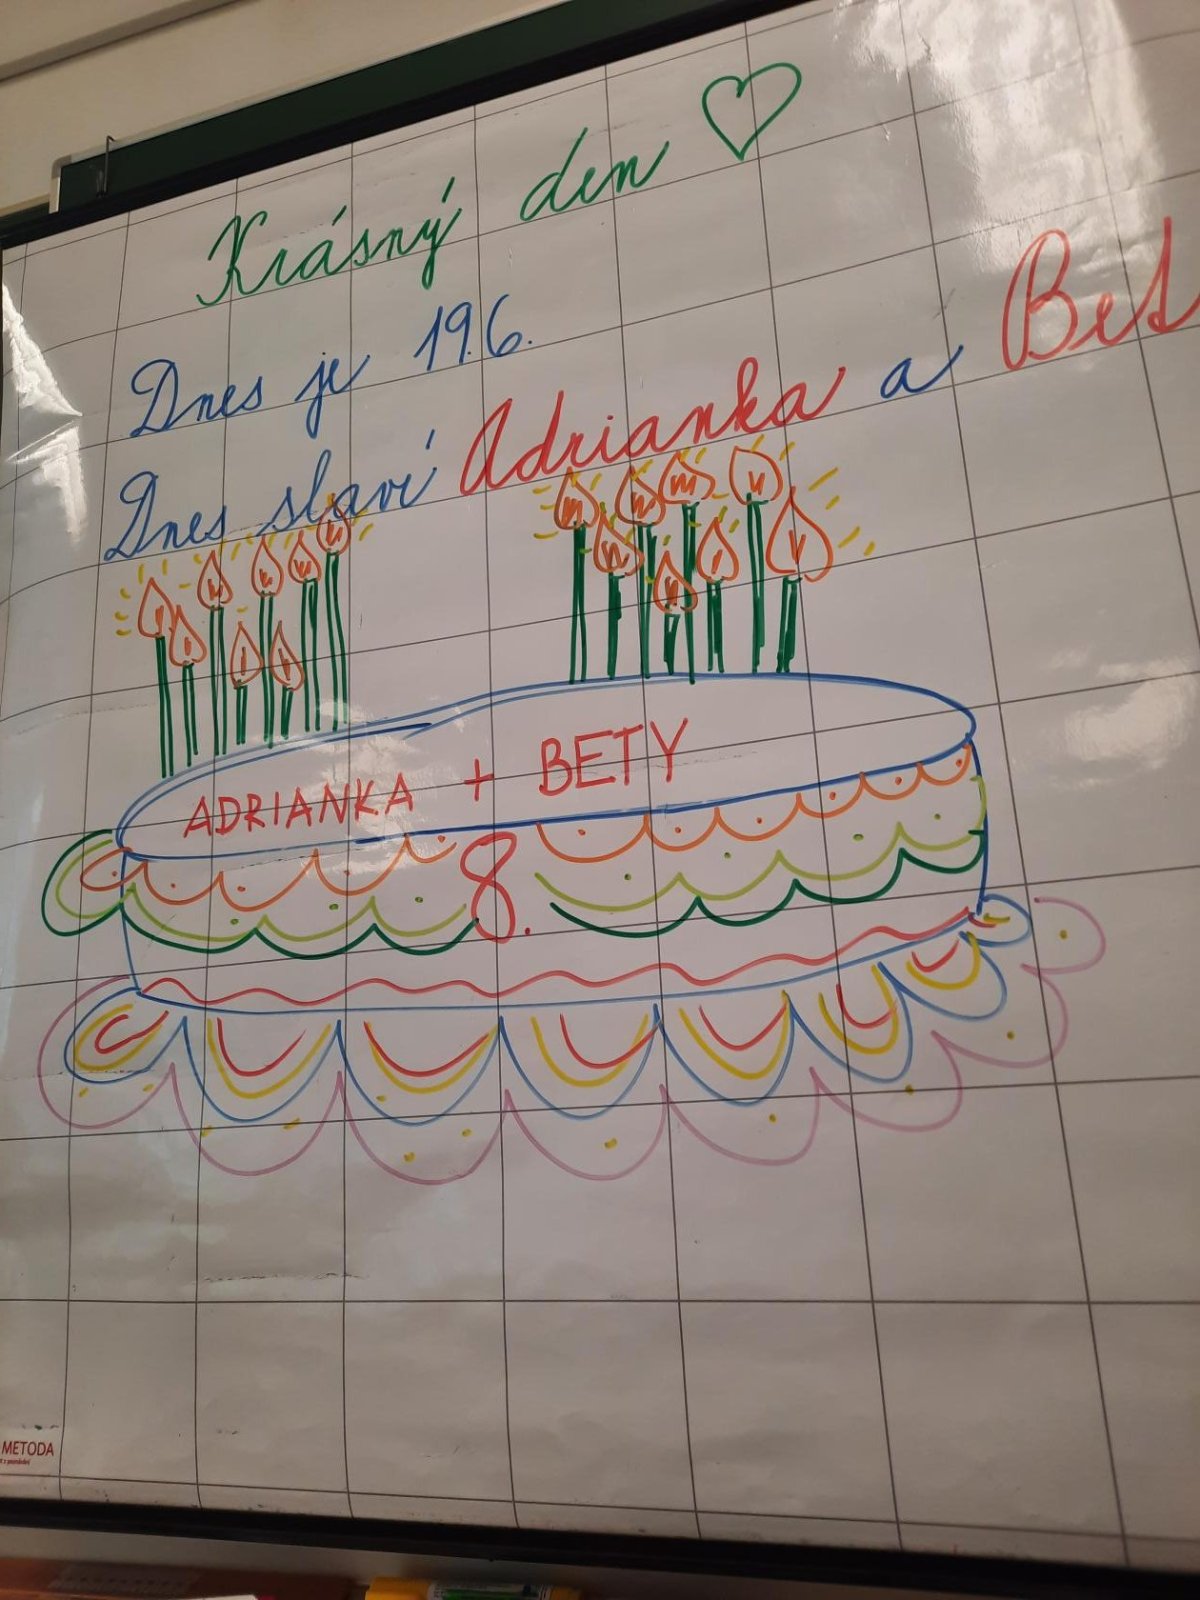 Krásný den ♡
Dnes je 19.6.
Dnes slaví Adrianka a Bet
ADRIANKA + BETY
8.
METODA